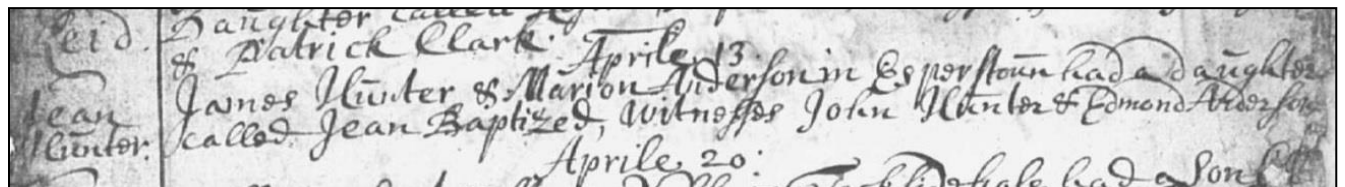 Reid. Daughter called
& Patrick Clark.
Aprile 13
Jean James Hunter & Marion Anderson in Esperstoun had a daughter
Hunter. called Jean Baptized, Witnesses John Hunter & Edmond Anderson
Aprile 20.
had a Son